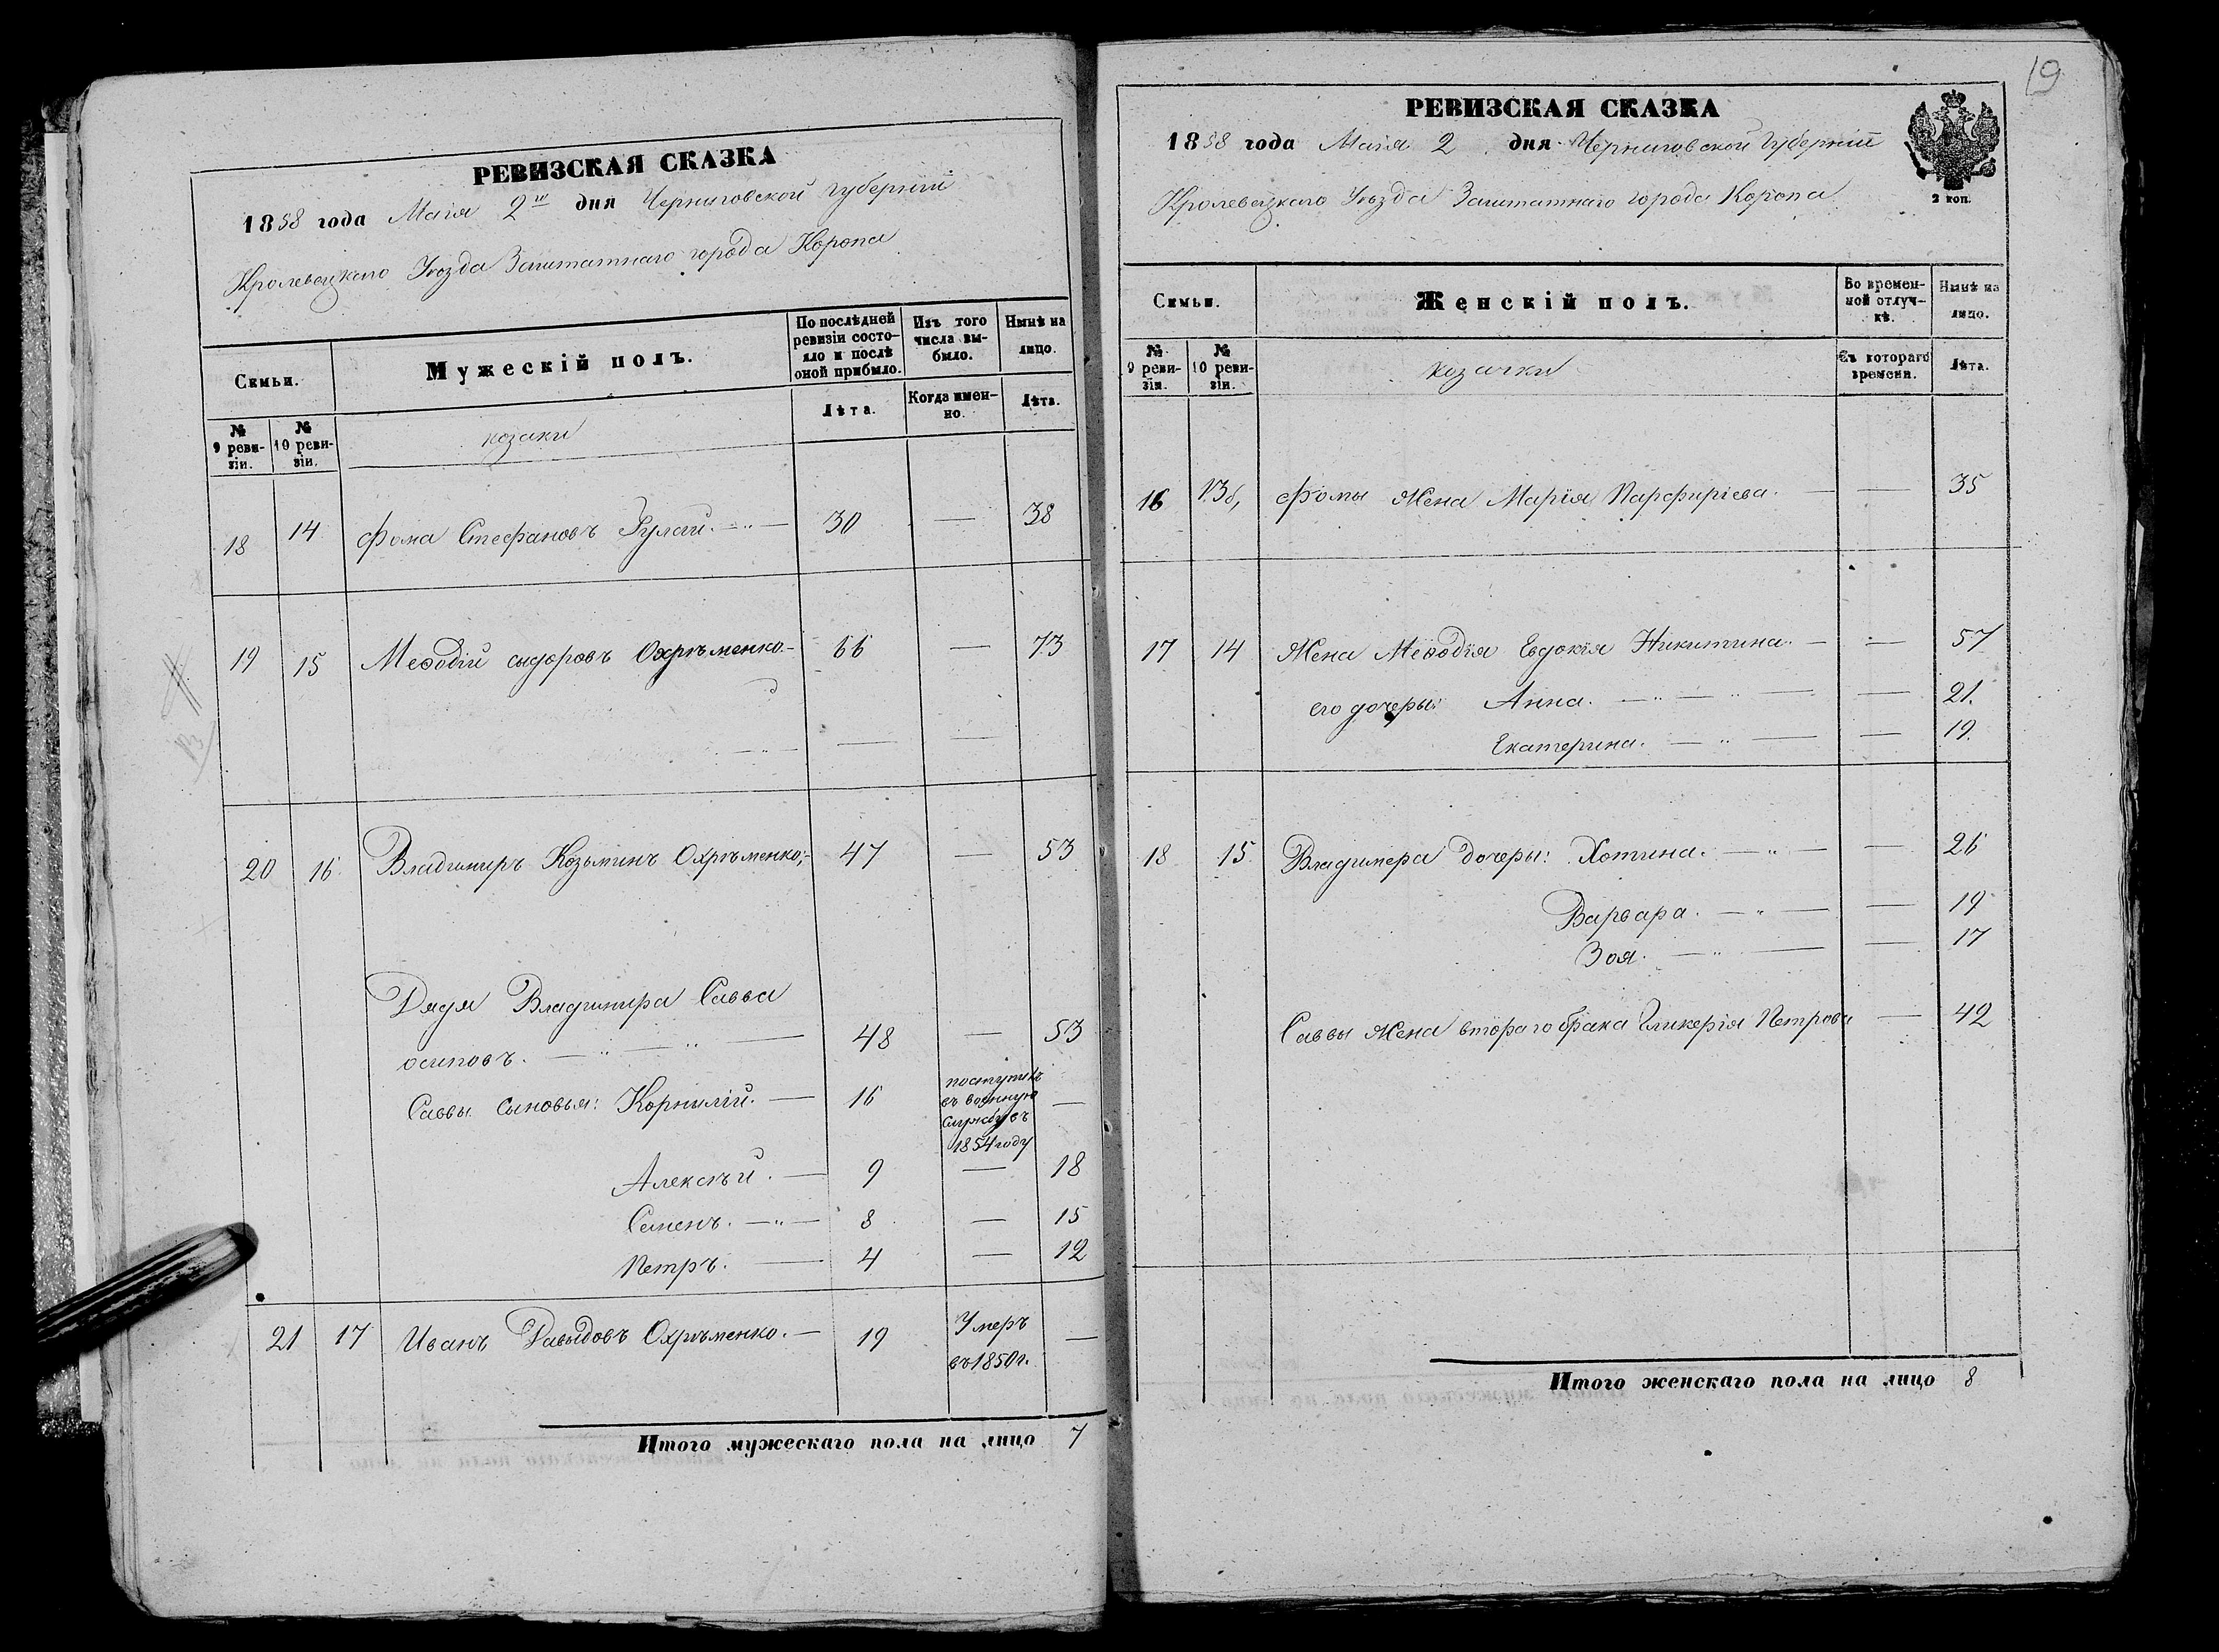 РЕВИЗСКАЯ СКАЗКА
1858 года Маія 2го дня Черниговской губерніи
Кролевецкаго Уѣзда Заштатнаго города Коропа
Семьи.
Мужескій полъ.
По послѣдней ревизіи состо-
яло и послѣ
оной прибыло.
Изъ того
числа вы-
было.
Нынѣ на
лицо.
№
9 реви-
зіи.
№
10 реви-
зіи.
козаки
Лѣта.
Когда имен-
но.
Лѣта.
18 14 Фома Стефановъ 30 — 38
19 15 Меѳодій сыдоровъ Охрѣменко — 66 — 73
20 16 Владимиръ Козьминъ Охрѣменко; — 47 — 53
Дядя Владимира Савва
осиповъ. — 48 — 53
Саввы сыновья: Корнилій. — 16 поступилъ
въ военную
службу въ
1854 году —
Алексѣй. — 9 — 18
Семенъ. — 8 — 15
Петръ. — 4 — 12
21 17 Иванъ Давыдовъ Охрѣменко. — 19 Умеръ
въ 1850 г. —
Итого мужескаго пола на лицо 7
19
РЕВИЗСКАЯ СКАЗКА
1858 года Маія 2 дня Черниговской Губерніи
Кролевецкаго Уѣзда Заштатнаго города Коропа
2 коп.
Семьи.
Женскій полъ.
Во времен-
ной отлуч-
кѣ.
Нынѣ на
лицо.
№
9 реви-
зіи.
№
10 реви-
зіи.
козачки
Съ котораго
времени.
Лѣта.
16 13б, Фомы Жена Марія Парфиріева. — — 35
17 14 Жена Меѳодія Евдокія Никитина. — — 57
его дочеры: Анна. — — 21.
Екатерина. — — 19.
18 15. Владимера дочеры: Хотина. — — 26
Варвара. — — 19
Зоя. — — 17
Саввы Жена втораго брака Гликерія Петрова — 42
Итого женскаго пола на лицо 8